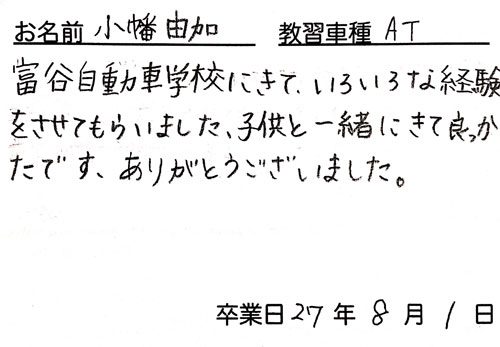 お名前 小幡由加 教習車種 AT
富谷自動車学校にきて、いろいろな経験
をさせてもらいました、子供と一緒にきて良っか
たです、ありがとうございました。
卒業日27年8月1日